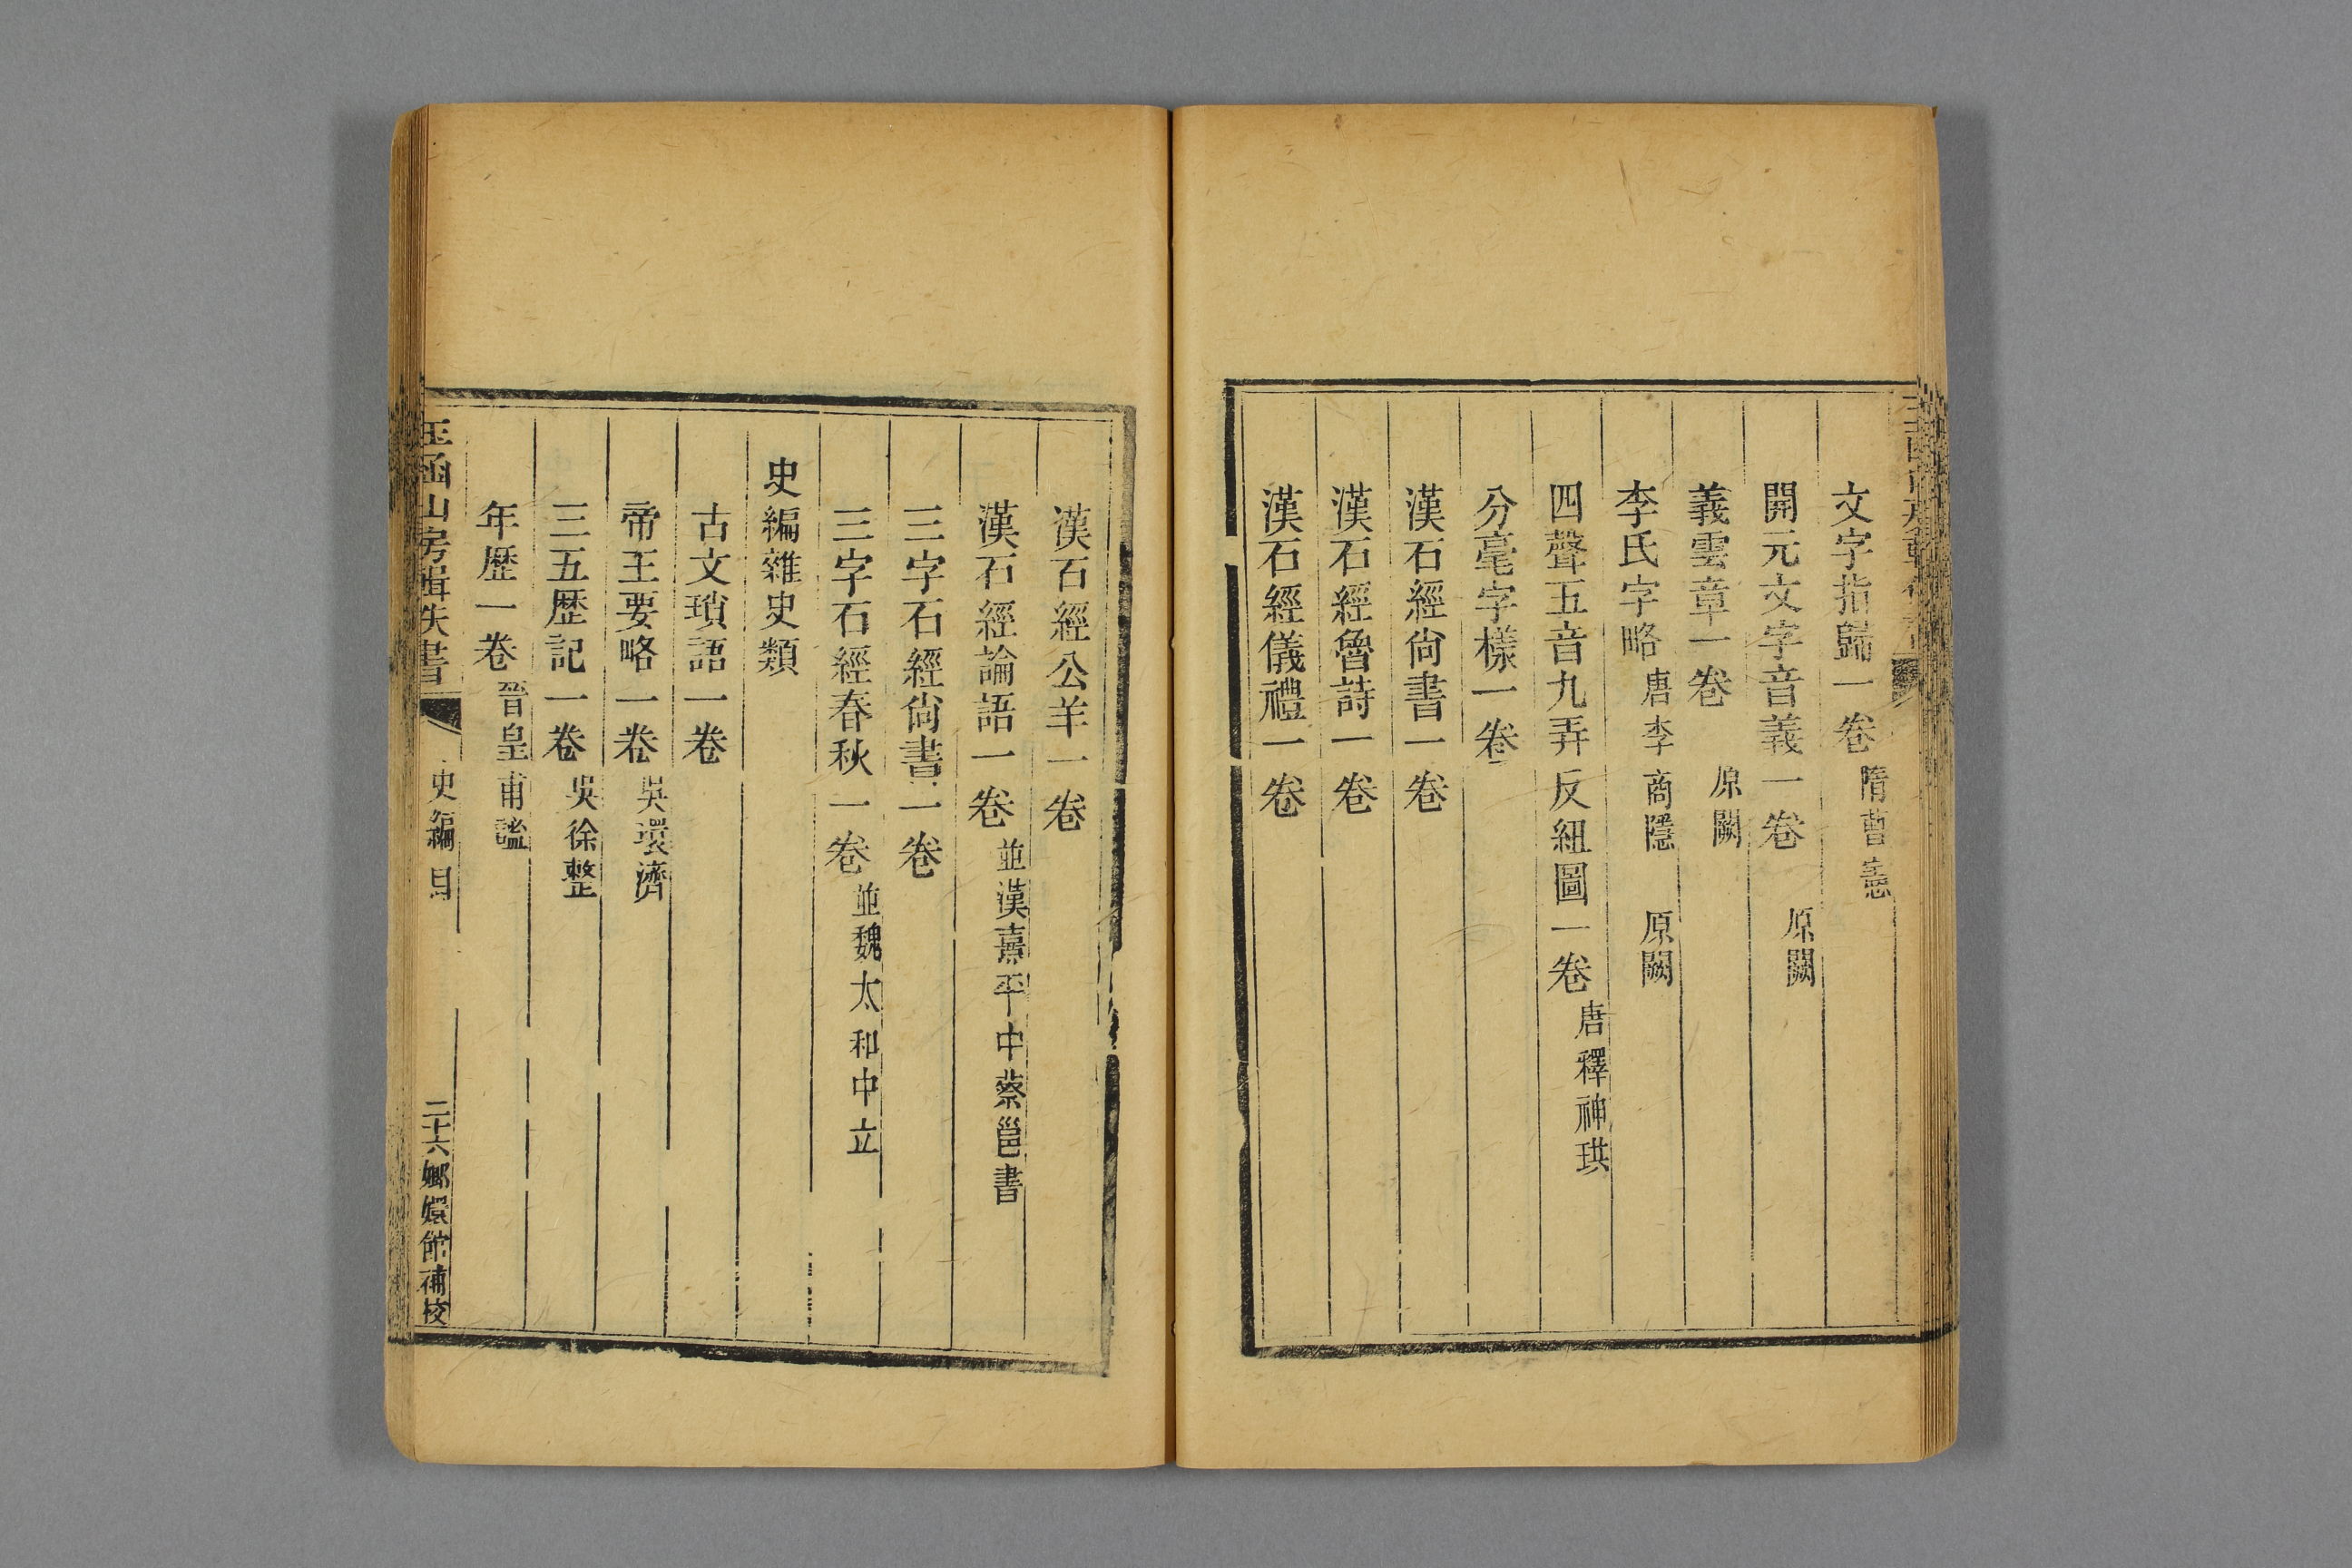 文字指歸一卷 隋曹憲
開元文字音義一卷 原闕
義雲章一卷 原闕
李氏字略 唐李商隱 原闕
四聲五音九弄反紐圖一卷 唐釋神珙
分毫字樣一卷
漢石經尙書一卷
漢石經魯詩一卷
漢石經儀禮一卷
漢石經公羊一卷
漢石經論語一卷 並漢熹平中蔡邕書
三字石經尙書一卷
三字石經春秋一卷 並魏太和中立
史編雜史類
古文瑣語一卷
帝王要略一卷 吳環濟
三五歷記一卷 吳徐整
年歷一卷 晉皇甫謐
玉函山房輯佚書 史編目 二十六 嫏嬛館補校